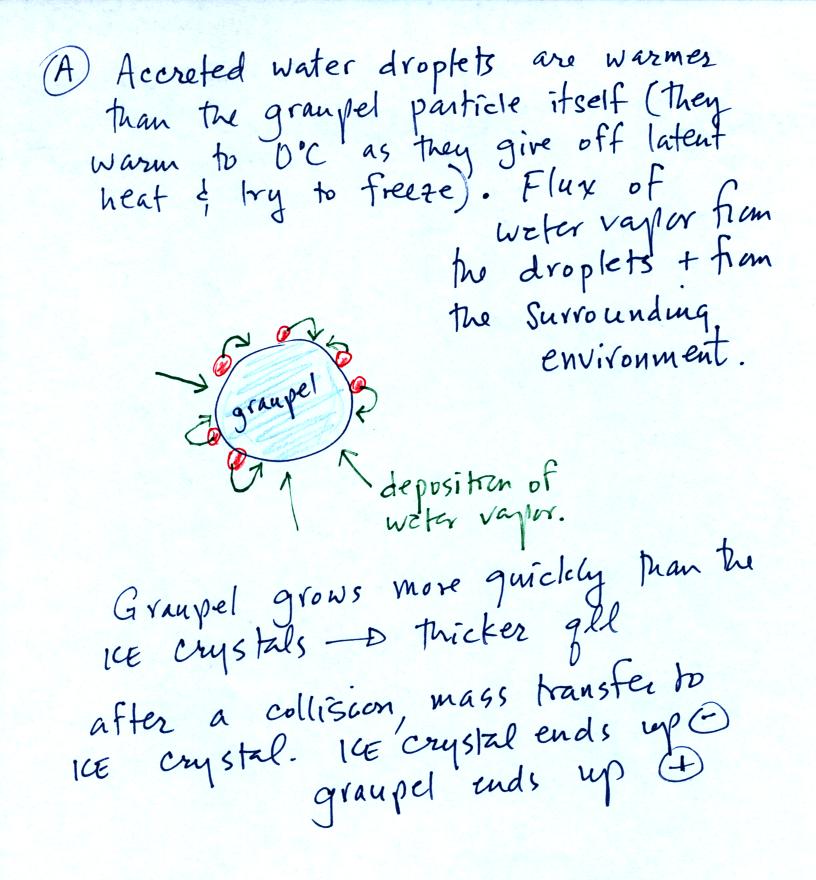 Ⓐ Accreted water droplets are warmer
than the graupel particle itself (they
warm to 0°C as they give off latent
heat & try to freeze). Flux of
water vapor from
the droplets + from
the surrounding
environment.
graupel
deposition of
water vapor.
Graupel grows more quickly than the
ICE crystals → thicker qll
after a collision, mass transfer to
ICE crystal. ICE crystal ends up ⊖
graupel ends up ⊕